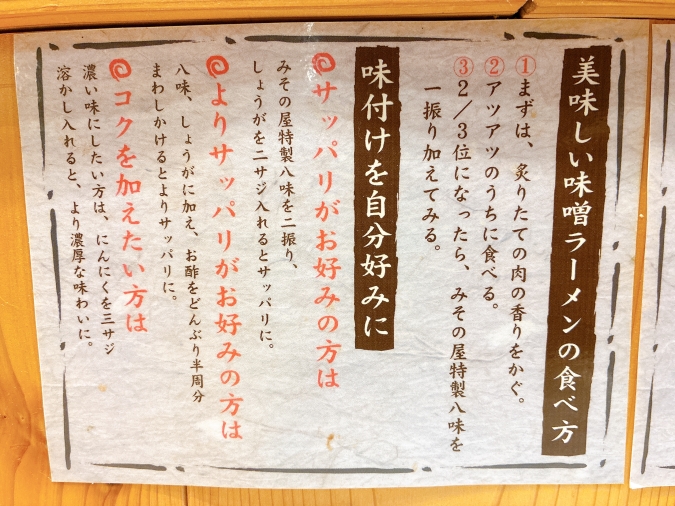 美味しい味噌ラーメンの食べ方
①まずは、炙りたての肉の香りをかぐ。
②アツアツのうちに食べる。
③2/3位になったら、みその屋特製八味を
一振り加えてみる。
味付けを自分好みに
サッパリがお好みの方は
みその屋特製八味を二振り、
しょうがを二サジ入れるとサッパリに。
よりサッパリがお好みの方は
八味、しょうがに加え、お酢をどんぶり半周分
まわしかけるとよりサッパリに。
コクを加えたい方は
濃い味にしたい方は、にんにくを三サジ
溶かし入れると、より濃厚な味わいに。